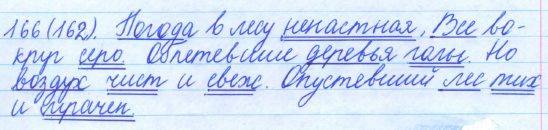 166(162). Погода в лесу ненастная. Все во-
круг серо. Облетевшие деревья голы. Но
воздух чист и свеж. Опустевший лес тих
и мрачен.